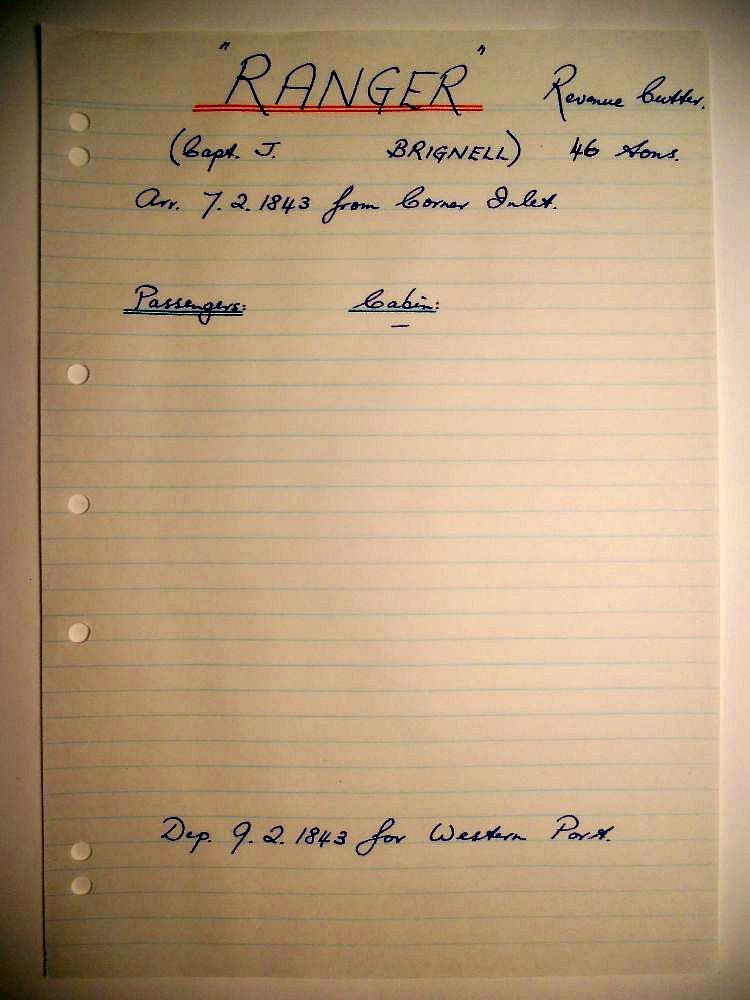 "RANGER" Revenue Cutter.
(Capt. J. BRIGNELL) 46 tons.
Arr. 7.2.1843 from Corner Inlet.
Passengers: Cabin:
—
Dep. 9.2.1843 for Western Port.